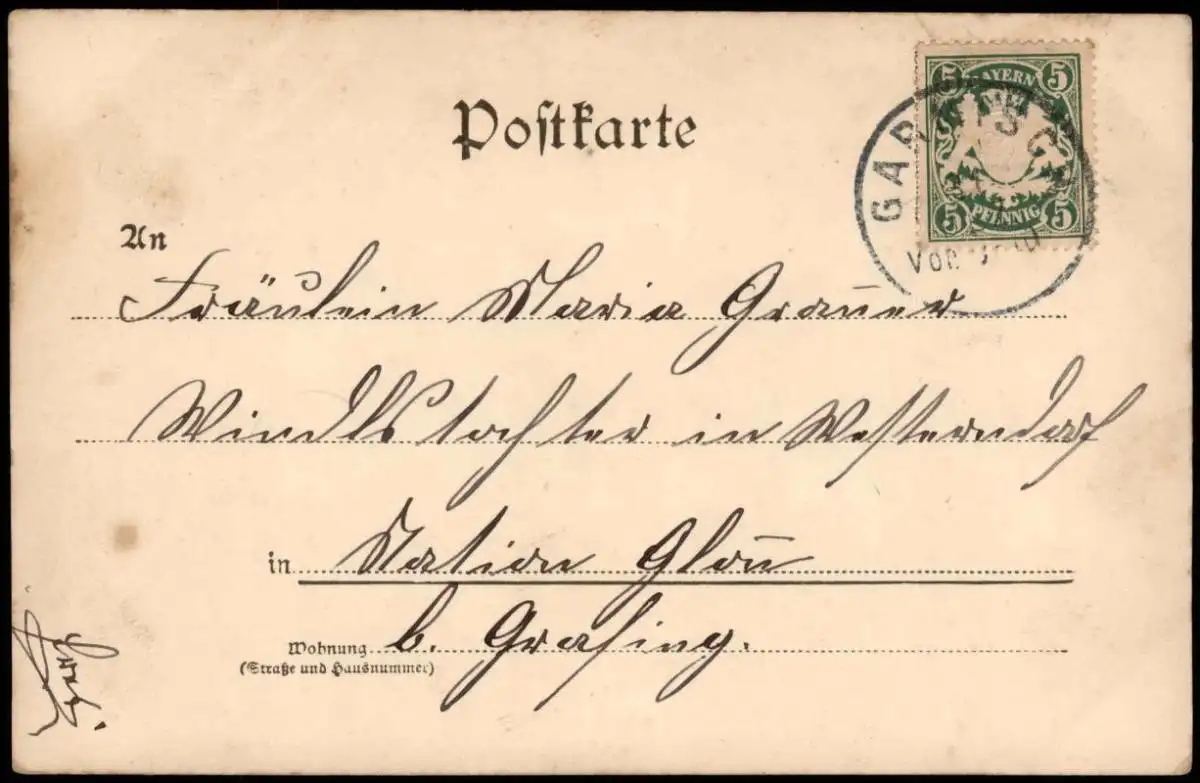 Postkarte
5 BAYERN 5
5 PFENNIG 5
GARMISCH
An
Fräulein Maria Grauer
Windlstochter in Westerndorf
in Station Glon
b. Grafing.
Wohnung
(Straße und Hausnummer)